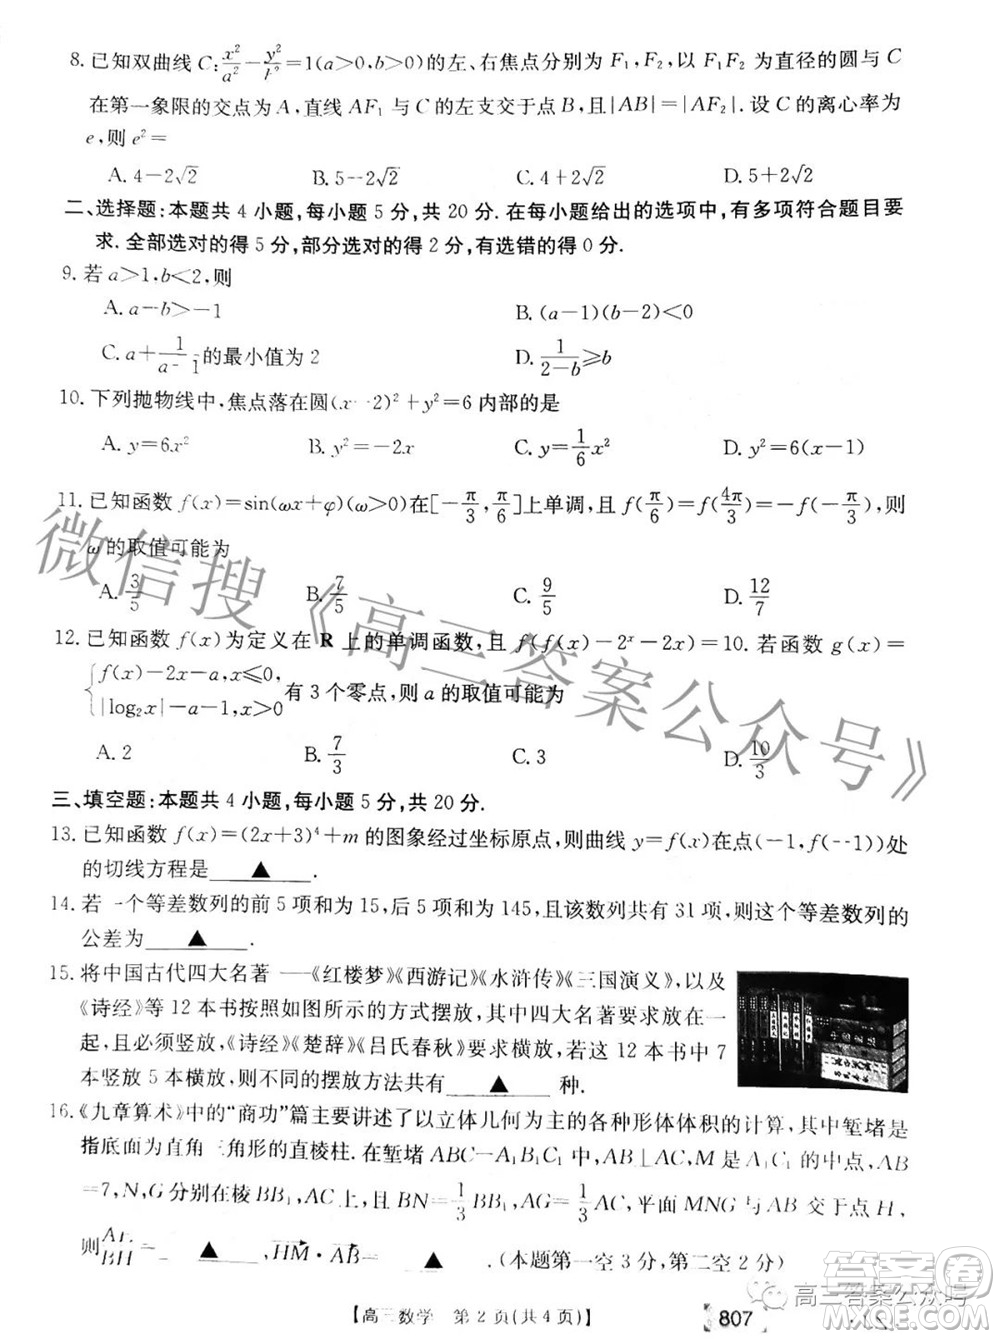 8. 已知双曲线 C: x²/a² − y²/b² = 1(a>0,b>0) 的左、右焦点分别为 F₁, F₂, 以 F₁F₂ 为直径的圆与 C
在第一象限的交点为 A, 直线 AF₁ 与 C 的左支交于点 B, 且 |AB|=|AF₂|. 设 C 的离心率为
e, 则 e²=
A. 4−2√2 B. 5−2√2 C. 4+2√2 D. 5+2√2
二、选择题:本题共 4 小题,每小题 5 分,共 20 分. 在每小题给出的选项中,有多项符合题目要
求. 全部选对的得 5 分,部分选对的得 2 分,有选错的得 0 分.
9. 若 a>1, b<2, 则
A. a−b>−1 B. (a−1)(b−2)<0
C. a+1/(a−1) 的最小值为 2 D. 1/(2−b)≥b
10. 下列抛物线中,焦点落在圆(x−2)²+y²=6 内部的是
A. y=6x² B. y²=−2x C. y=1/6 x² D. y²=6(x−1)
11. 已知函数 f(x)=sin(ωx+φ)(ω>0)在[−π/3, π/6]上单调,且 f(π/6)=f(4π/3)=−f(−π/3),则
ω 的取值可能为
A. 3/5 B. 7/5 C. 9/5 D. 12/7
12. 已知函数 f(x)为定义在 R 上的单调函数,且 f(f(x)−2ˣ−2x)=10. 若函数 g(x)=
{f(x)−2x−a, x≤0, |log₂x|−a−1, x>0 有 3 个零点,则 a 的取值可能为
A. 2 B. 7/3 C. 3 D. 10/3
三、填空题:本题共 4 小题,每小题 5 分,共 20 分.
13. 已知函数 f(x)=(2x+3)⁴+m 的图象经过坐标原点,则曲线 y=f(x)在点(−1,f(−1))处
的切线方程是 ▲ .
14. 若一个等差数列的前 5 项和为 15,后 5 项和为 145,且该数列共有 31 项,则这个等差数列的
公差为 ▲ .
15. 将中国古代四大名著——《红楼梦》《西游记》《水浒传》《三国演义》,以及
《诗经》等 12 本书按照如图所示的方式摆放,其中四大名著要求放在一
起,且必须竖放,《诗经》《楚辞》《吕氏春秋》要求横放,若这 12 本书中 7
本竖放 5 本横放,则不同的摆放方法共有 ▲ 种.
16. 《九章算术》中的“商功”篇主要讲述了以立体几何为主的各种形体体积的计算,其中堑堵是
指底面为直角三角形的直棱柱. 在堑堵 ABC−A₁B₁C₁ 中, AB⊥AC, M 是 A₁C₁ 的中点, AB
=7, N, G 分别在棱 BB₁, AC 上, 且 BN=1/3 BB₁, AG=1/3 AC, 平面 MNG 与 AB 交于点 H,
则 AH/BH= ▲ , HM·AB= ▲ . (本题第一空 3 分,第二空 2 分)
【高三数学 第 2 页(共 4 页)】 807
微信搜《高三答案公众号》
高三答案公众号
答案圈
MXQE.COM